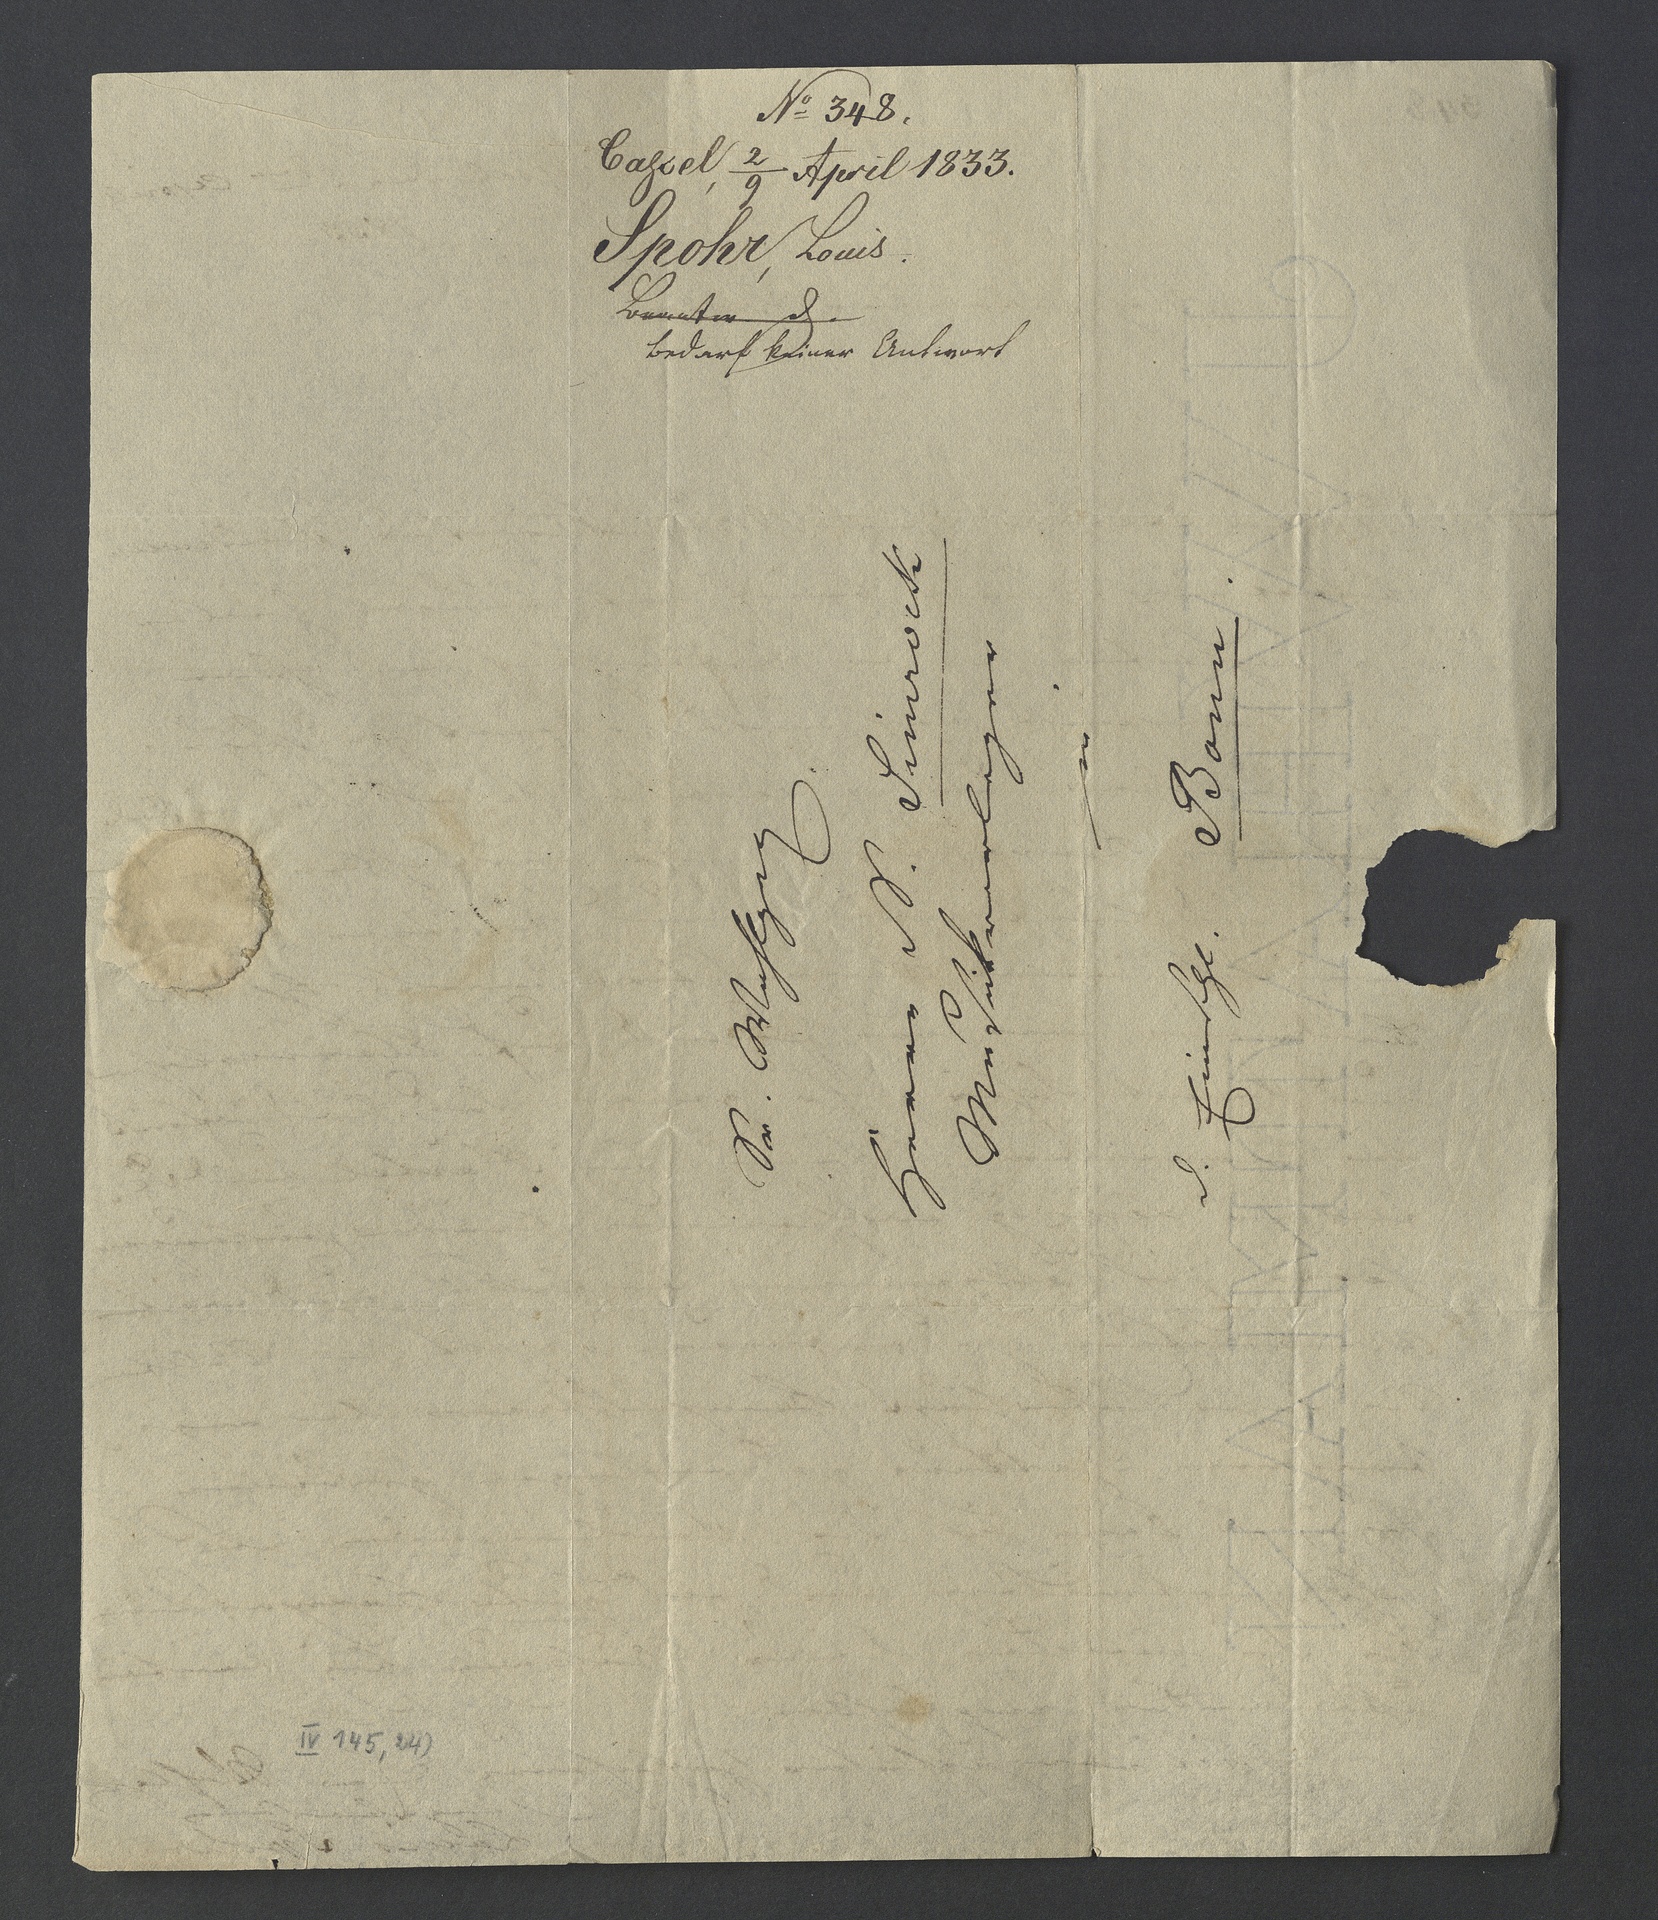 No 348.
Cassel, 2/9 April 1833.
Spohr, Louis.
bedarf keiner Antwort
Sr. Wohlgeb.
Herrn N. Simrock
Musikverleger
in
d. Einschl. Bonn.
IV 145, 24)